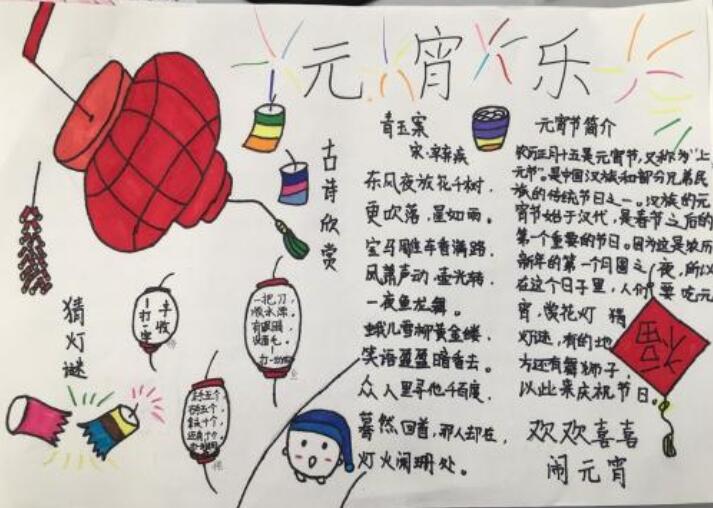 元宵乐
古诗欣赏
青玉案
宋·辛弃疾
东风夜放花千树，
更吹落，星如雨。
宝马雕车香满路，
凤箫声动，壶光转，
一夜鱼龙舞。
蛾儿雪柳黄金缕，
笑语盈盈暗香去。
众人里寻他千百度，
蓦然回首，那人却在，
灯火阑珊处。
元宵节简介
农历正月十五是元宵节，又称为“上
元节”。是中国汉族和部分兄弟民
族的传统节日之一。汉族的元
宵节始于汉代，是春节之后的
第一个重要的节日。因为这是农历
新年的第一个月圆之夜，所以
在这个日子里，人们要吃元
宵，赏花灯 猜
灯谜，有的地
方还有舞狮子，
以此来庆祝节日。
福
欢欢喜喜
闹元宵
猜灯谜
丰收
（打一字
一把刀，
顺水漂，
有眼睛，
没眉毛。
左手五个，
右手五个，
拿去十个，
还有十个。